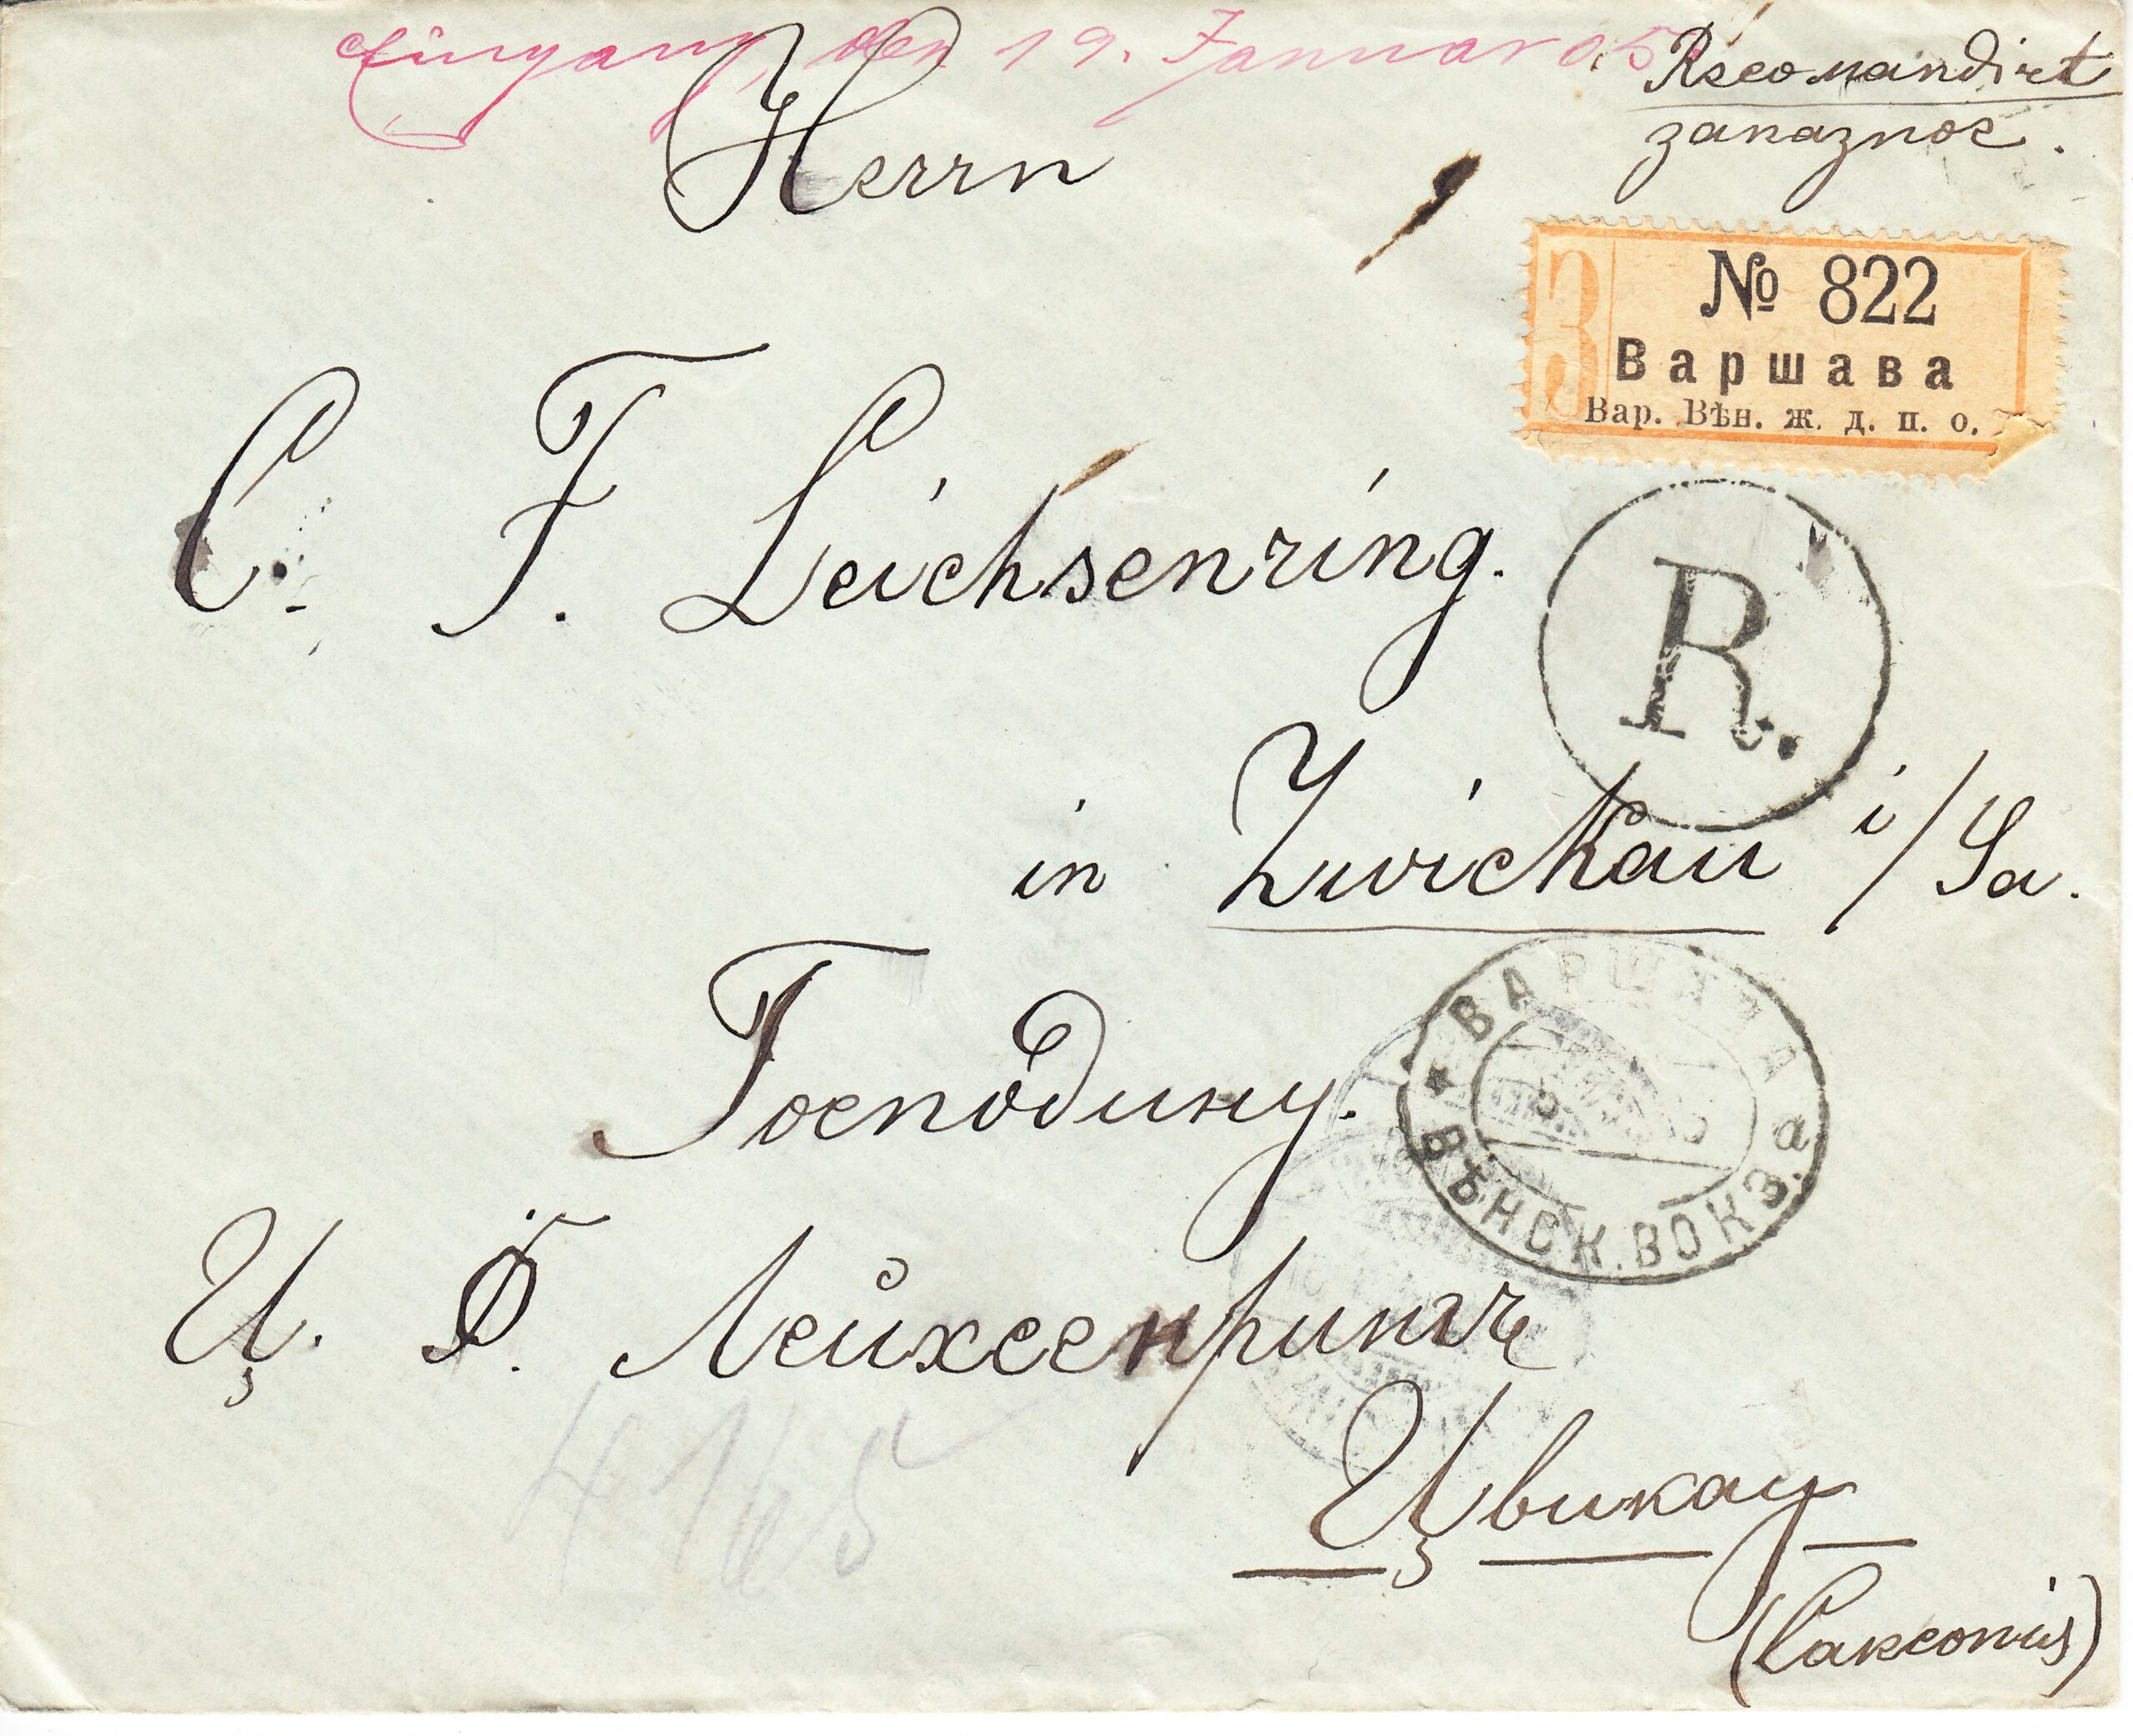 Eingang, den 19. Januar 05.
Recomandirt
заказное.
Herrn
З
№ 822
Варшава
Вар. Вѣн. ж. д. п. о.
C. F. Leichsenring.
R.
in Zwickau i/Sa.
Господину.
ВАРШАВА
ВѢНСК. ВОКЗ. а
Ц. Ф. Лейхсенрингъ
Цвикау
(Саксонія)